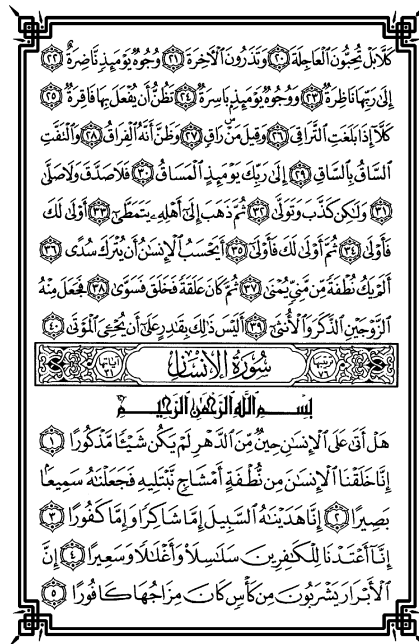 كَلَّا بَلْ تُحِبُّونَ ٱلْعَاجِلَةَ ٢٠ وَتَذَرُونَ ٱلْءَاخِرَةَ ٢١ وُجُوهٌ يَوْمَئِذٍ نَّاضِرَةٌ ٢٢
إِلَىٰ رَبِّهَا نَاظِرَةٌ ٢٣ وَوُجُوهٌ يَوْمَئِذٍۭ بَاسِرَةٌ ٢٤ تَظُنُّ أَن يُفْعَلَ بِهَا فَاقِرَةٌ ٢٥
كَلَّآ إِذَا بَلَغَتِ ٱلتَّرَاقِىَ ٢٦ وَقِيلَ مَنْ ۜ رَاقٍ ٢٧ وَظَنَّ أَنَّهُ ٱلْفِرَاقُ ٢٨ وَٱلْتَفَّتِ
ٱلسَّاقُ بِٱلسَّاقِ ٢٩ إِلَىٰ رَبِّكَ يَوْمَئِذٍ ٱلْمَسَاقُ ٣٠ فَلَا صَدَّقَ وَلَا صَلَّىٰ
٣١ وَلَٰكِن كَذَّبَ وَتَوَلَّىٰ ٣٢ ثُمَّ ذَهَبَ إِلَىٰٓ أَهْلِهِۦ يَتَمَطَّىٰٓ ٣٣ أَوْلَىٰ لَكَ
فَأَوْلَىٰ ٣٤ ثُمَّ أَوْلَىٰ لَكَ فَأَوْلَىٰٓ ٣٥ أَيَحْسَبُ ٱلْإِنسَٰنُ أَن يُتْرَكَ سُدًى ٣٦
أَلَمْ يَكُ نُطْفَةً مِّن مَّنِىٍّ يُمْنَىٰ ٣٧ ثُمَّ كَانَ عَلَقَةً فَخَلَقَ فَسَوَّىٰ ٣٨ فَجَعَلَ مِنْهُ
ٱلزَّوْجَيْنِ ٱلذَّكَرَ وَٱلْأُنثَىٰٓ ٣٩ أَلَيْسَ ذَٰلِكَ بِقَٰدِرٍ عَلَىٰٓ أَن يُحْۦِىَ ٱلْمَوْتَىٰ ٤٠
ترتيبها ٧٦ سُورَةُ الإِنسَانِ آياتها ٣١
بِسْمِ ٱللَّهِ ٱلرَّحْمَٰنِ ٱلرَّحِيمِ
هَلْ أَتَىٰ عَلَى ٱلْإِنسَٰنِ حِينٌ مِّنَ ٱلدَّهْرِ لَمْ يَكُن شَيْـًٔا مَّذْكُورًا ١
إِنَّا خَلَقْنَا ٱلْإِنسَٰنَ مِن نُّطْفَةٍ أَمْشَاجٍ نَّبْتَلِيهِ فَجَعَلْنَٰهُ سَمِيعًۢا
بَصِيرًا ٢ إِنَّا هَدَيْنَٰهُ ٱلسَّبِيلَ إِمَّا شَاكِرًا وَإِمَّا كَفُورًا ٣
إِنَّآ أَعْتَدْنَا لِلْكَٰفِرِينَ سَلَٰسِلَا۟ وَأَغْلَٰلًا وَسَعِيرًا ٤ إِنَّ
ٱلْأَبْرَارَ يَشْرَبُونَ مِن كَأْسٍ كَانَ مِزَاجُهَا كَافُورًا ٥